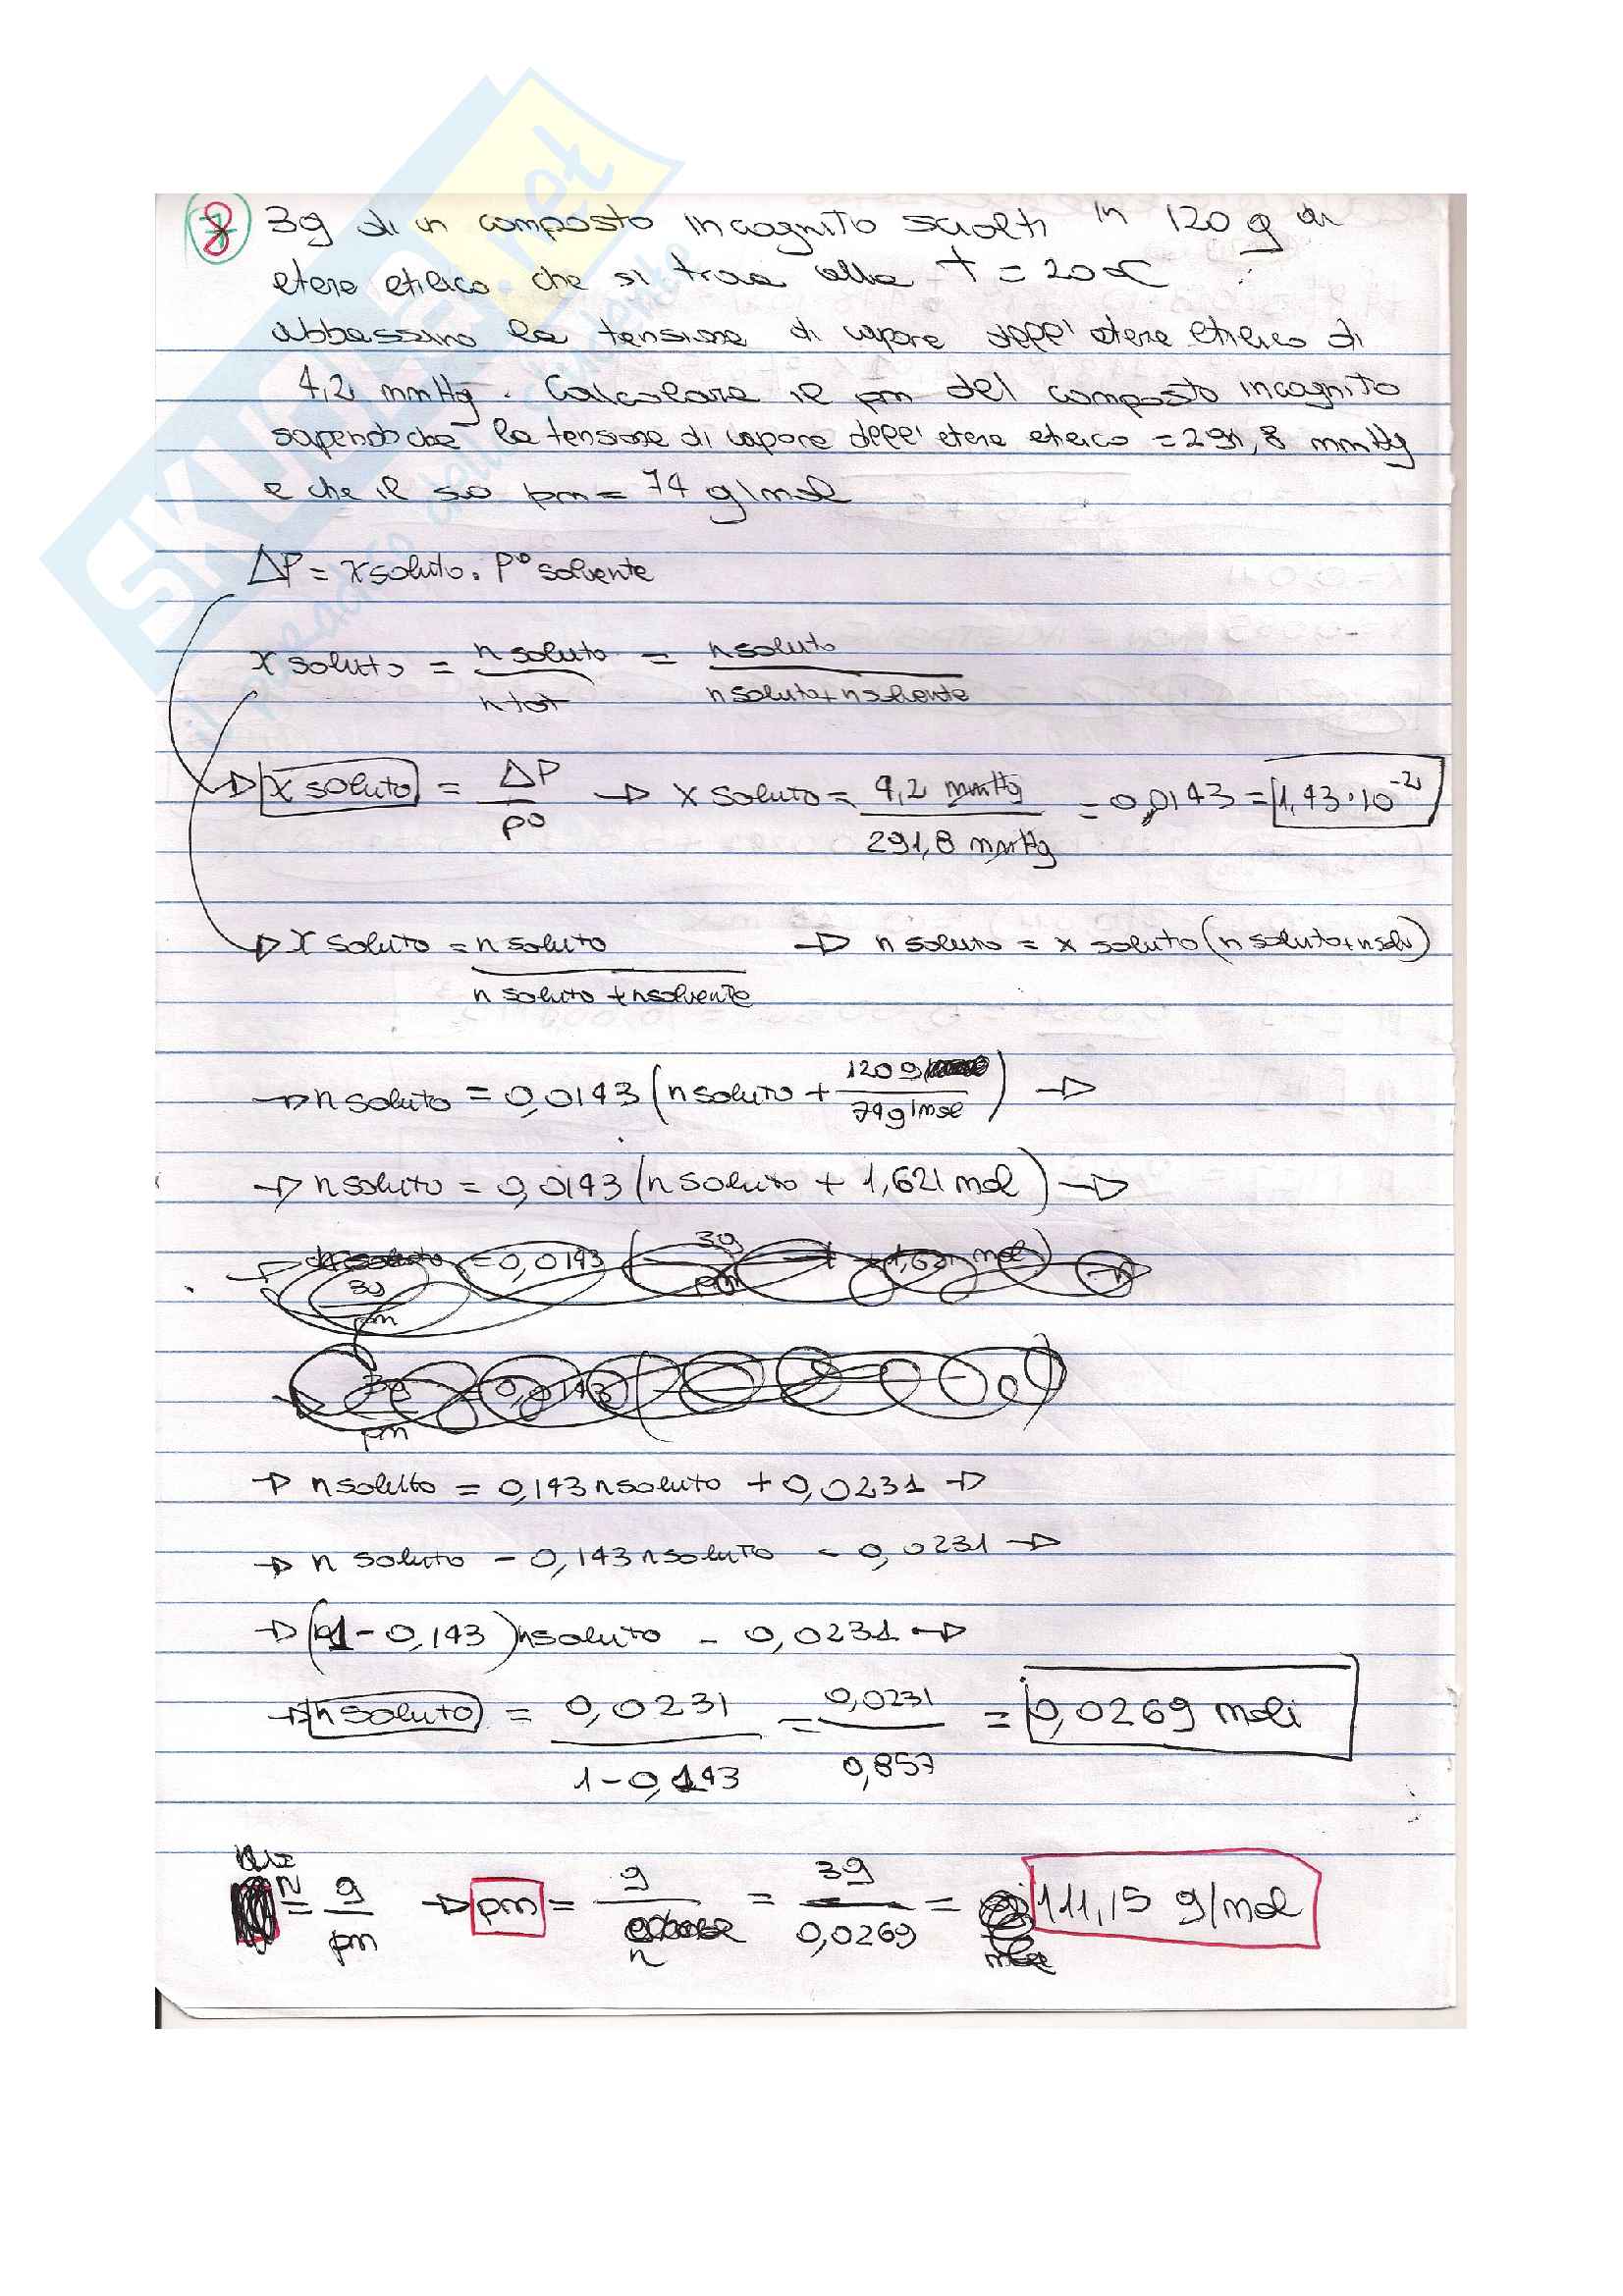 SKUOLA.net
il paradiso dello studente
8 3g di un composto incognito sciolti in 120 g di
etere etilico che si trova alla T = 20°C
abbassano la tensione di vapore dell'etere etilico di
4,2 mmHg. Calcolare il pm del composto incognito
sapendo che la tensione di vapore dell'etere etilico = 291,8 mmHg
e che il suo pm = 74 g/mol
ΔP = x soluto · P° solvente
x soluto = n soluto / n tot = n soluto / n soluto + n solvente
→ x soluto = ΔP / P° → x soluto = 4,2 mmHg / 291,8 mmHg = 0,0143 = 1,43·10⁻²
→ x soluto = n soluto / n soluto + n solvente → n soluto = x soluto (n soluto + n solv)
→ n soluto = 0,0143 (n soluto + 120 g / 74 g/mol) →
→ n soluto = 0,0143 (n soluto + 1,621 mol) →
→ n soluto = 0,143 n soluto + 0,0231 →
→ n soluto - 0,143 n soluto = 0,0231 →
→ (1 - 0,143) n soluto = 0,0231 →
→ n soluto = 0,0231 / 1 - 0,143 = 0,0231 / 0,857 = 0,0269 moli
n = g / pm → pm = g / n = 3g / 0,0269 = 111,15 g/mol